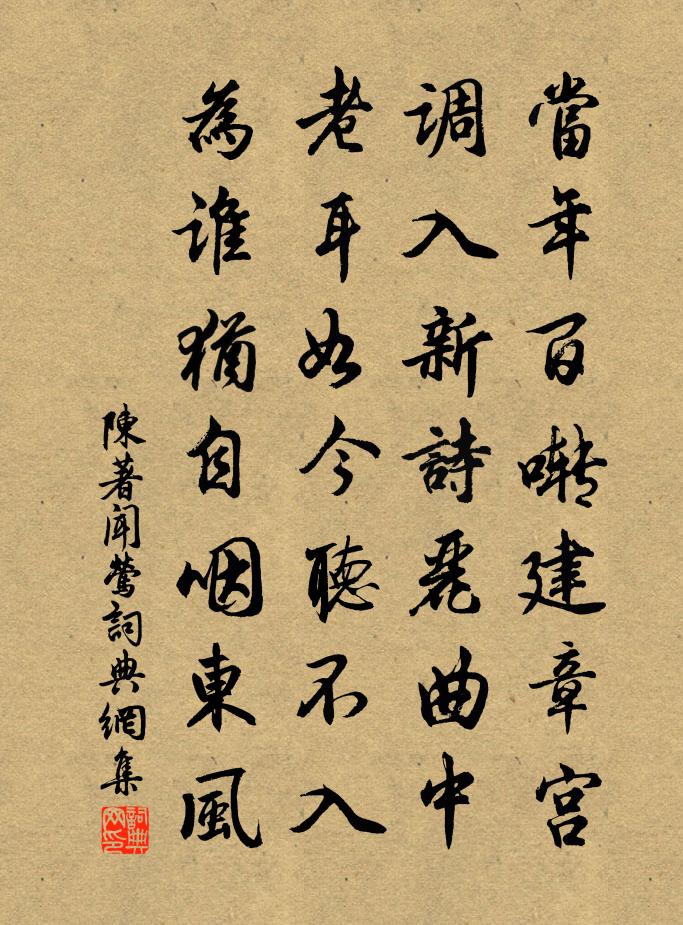 當年百囀建章宮
調入新詩麗曲中
老耳如今聽不入
為誰猶自咽東風
陳著聞鶯詞典網集
詞典網印